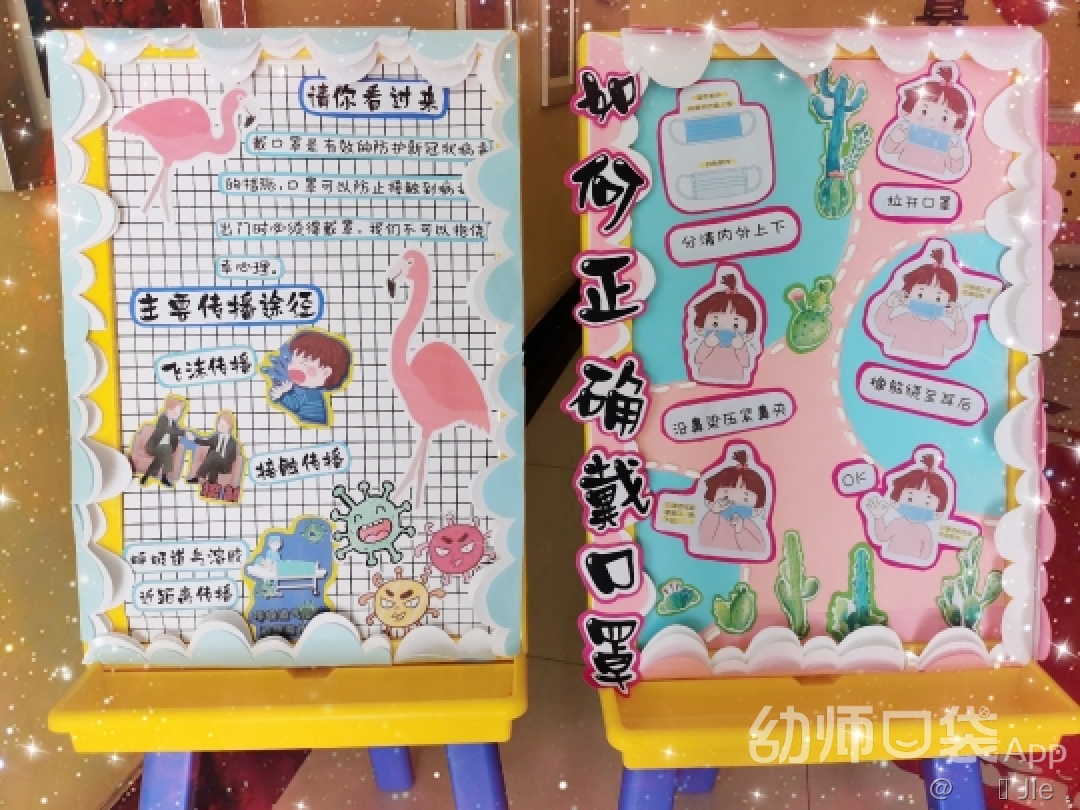 请你看过来
戴口罩是有效的防护新冠状病毒
的措施,口罩可以防止接触到病
出门时必须得戴罩,我们不可以抱侥
幸心理。
主要传播途径
飞沫传播
接触传播
呼吸道与溶胶
近距离传播
如何正确戴口罩
分清内外上下
拉开口罩
沿鼻梁压紧鼻夹
绳解绕至耳后
OK
幼师口袋App
@
Jle